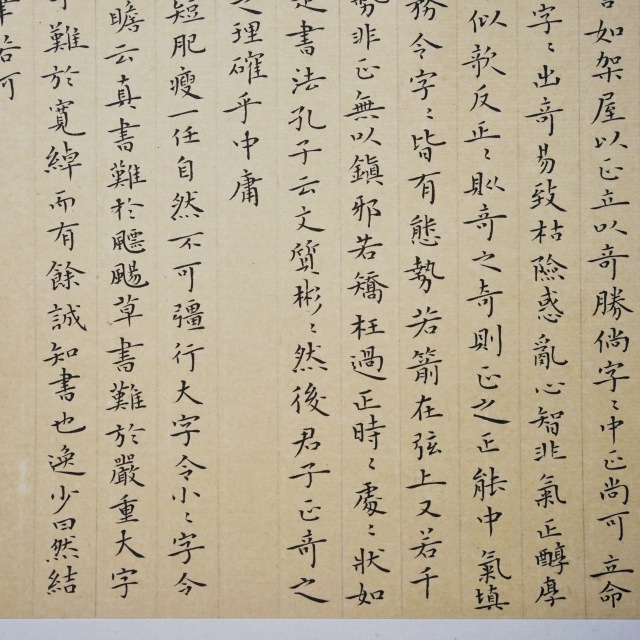 如架屋以正立以奇勝倘字〻中正尚可立命
字〻出奇易致枯險惑亂心智非氣正醇厚
似欹反正〻似奇之奇則正之正能中氣填
務令字〻皆有態勢若箭在弦上又若千
勢非正無以鎮邪若矯枉過正時〻處〻狀如
書法孔子云文質彬〻然後君子正奇之
之理確乎中庸
短肥瘦一任自然不可彊行大字令小〻字令
瞻云真書難於飄颺草書難於嚴重大字
難於寬綽而有餘誠知書也逸少曰然結
若可